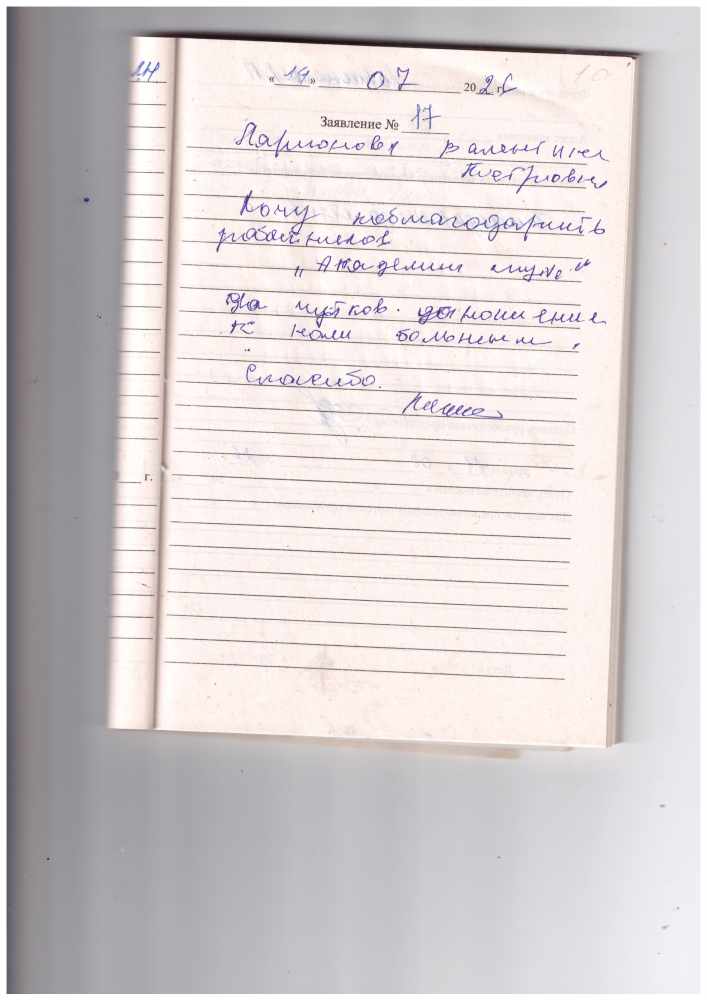 « 17 » 07 2026 г.
Заявление № 17
Ларионова Валентина
Петровна
Хочу поблагодарить
работников
„Академии
За чутков. отношение
к нам больным.
Спасибо.
г.